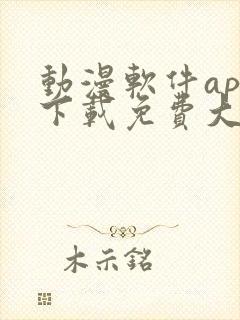 動漫軟件ap
下載免費大
木示銘